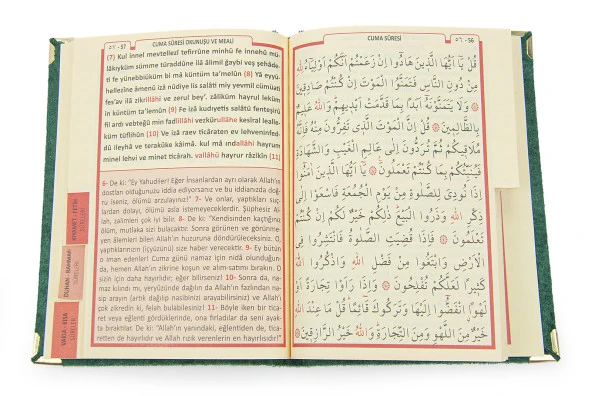 ٥٧ - 57
CUMA SÛRESİ OKUNUŞU VE MEALİ
(7) Kul innel mevtellezî tefirrûne minhü fe innehû mü-
lâkıyküm sümme türaddûne ilâ âlimil ğaybi veş şehâde-
ti fe yünebbiüküm bi mâ küntüm ta'melûn (8) Yâ eyyü-
hellezîne âmenû izâ nûdiye lis salâti miy yevmil cümüati
fes'av ilâ zikrillâhi ve zerul bey'. zâliküm hayrul leküm
in küntüm ta'lemûn (9) Fe izâ kudıyetis salâtü fenteşirû
fil ardı vebteğû min fadlillâhi vezkürullâhe kesîral lealle-
küm tüflihûn (10) Ve izâ raev ticâraten ev lehveninfed-
dû ileyhâ ve terakûke kâimâ. kul mâ ındallâhi hayrum
minel lehvi ve minet ticârah. vallâhü hayru râzikîn (11)
6- De ki: "Ey Yahudiler! Eğer insanlardan ayrı olarak Allah'ın
dostları olduğunuzu iddia ediyorsanız ve bu iddianızda doğ-
ru iseniz, ölümü arzulayınız!" 7- Ve onlar, yaptıkları suç-
lardan dolayı, ölümü asla istemeyeceklerdir. Şüphesiz Al-
lah, zalimleri çok iyi bilir. 8- De ki: "Kendisinden kaçtığınız
ölüm, mutlaka sizi bulacaktır. Sonra görünen ve görünme-
yen âlemleri bilen Allah'ın huzuruna döndürüleceksiniz. O,
yaptıklarınızın (içyüzünü) size haber verecektir. 9- Ey bütün
o iman edenler! Cuma günü namaz için nidâ olunduğun-
da, hemen Allah'ın zikrine koşun ve alım-satımı bırakın. O
sizin için daha hayırlıdır; eğer bilirseniz! 10- Sonra da, na-
maz kılındı mı, yeryüzünde dağılın da Allah'ın fazlından na-
sip arayın (artık dağılıp nasibinizi arayabilirsiniz) ve Allah'ı
çok zikredin ki, felah bulabilesiniz! 11- Böyle iken bir tica-
ret veya eğlenti gördüklerinde, ona fırladılar da seni ayak-
ta bıraktılar. De ki: "Allah'ın yanındaki, eğlentiden de, tica-
retten de hayırlıdır ve Allah rızık verenlerin en hayırlısıdır!"
CUMA SÛRESİ
٥٦ - 56
قُلْ يَا اَيُّهَا الَّذِينَ هَادُوا اِنْ زَعَمْتُمْ اَنَّكُمْ اَوْلِيَاءُ لِلّٰهِ
مِنْ دُونِ النَّاسِ فَتَمَنَّوُا الْمَوْتَ اِنْ كُنْتُمْ صَادِقِينَ
وَلَا يَتَمَنَّوْنَهُ اَبَدًا بِمَا قَدَّمَتْ اَيْدِيهِمْ وَاللّٰهُ عَلِيمٌ
بِالظَّالِمِينَ قُلْ اِنَّ الْمَوْتَ الَّذِي تَفِرُّونَ مِنْهُ فَاِنَّهُ
مُلَاقِيكُمْ ثُمَّ تُرَدُّونَ اِلَى عَالِمِ الْغَيْبِ وَالشَّهَادَةِ
فَيُنَبِّئُكُمْ بِمَا كُنْتُمْ تَعْمَلُونَ يَا اَيُّهَا الَّذِينَ اٰمَنُوا
اِذَا نُودِيَ لِلصَّلٰوةِ مِنْ يَوْمِ الْجُمُعَةِ فَاسْعَوْا اِلَى
ذِكْرِ اللّٰهِ وَذَرُوا الْبَيْعَ ذٰلِكُمْ خَيْرٌ لَكُمْ اِنْ كُنْتُمْ
تَعْلَمُونَ فَاِذَا قُضِيَتِ الصَّلٰوةُ فَانْتَشِرُوا فِي
الْاَرْضِ وَابْتَغُوا مِنْ فَضْلِ اللّٰهِ وَاذْكُرُوا اللّٰهَ
كَثِيرًا لَعَلَّكُمْ تُفْلِحُونَ وَاِذَا رَاَوْا تِجَارَةً اَوْ
لَهْوًا انْفَضُّوا اِلَيْهَا وَتَرَكُوكَ قَائِمًا قُلْ مَا عِنْدَ اللّٰهِ
خَيْرٌ مِنَ اللَّهْوِ وَمِنَ التِّجَارَةِ وَاللّٰهُ خَيْرُ الرَّازِقِينَ